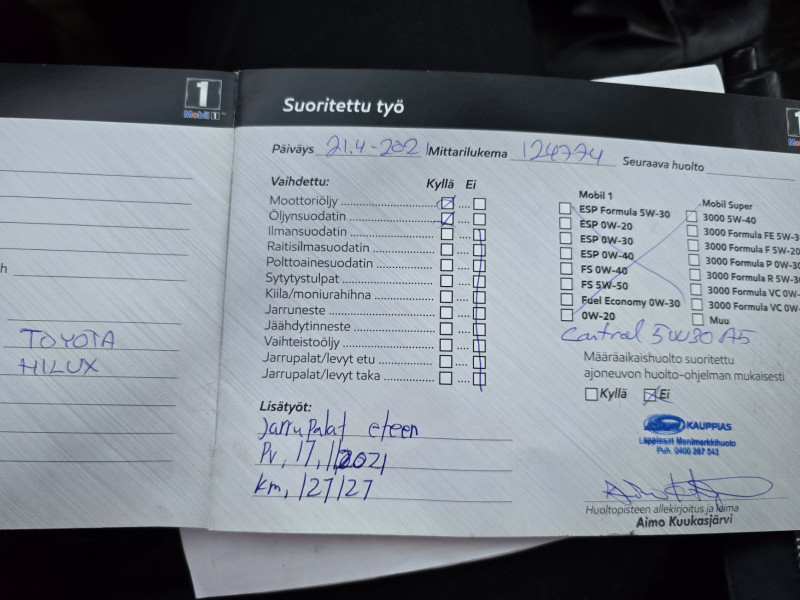 1
Mobil 1
h
TOYOTA
HILUX
Suoritettu työ
1
Päiväys 21.4-2021 Mittarilukema 124774 Seuraava huolto
Vaihdettu: Kyllä Ei
Moottoriöljy
Öljynsuodatin
Ilmansuodatin
Raitisilmasuodatin
Polttoainesuodatin
Sytytystulpat
Kiila/moniurahihna
Jarruneste
Jäähdytinneste
Vaihteistoöljy
Jarrupalat/levyt etu
Jarrupalat/levyt taka
Lisätyöt:
Jarrupalat eteen
Pv, 17, 2021
km, 127127
Mobil 1
ESP Formula 5W-30
ESP 0W-20
ESP 0W-30
ESP 0W-40
FS 0W-40
FS 5W-50
Fuel Economy 0W-30
0W-20
Mobil Super
3000 5W-40
3000 Formula FE 5W-3
3000 Formula F 5W-20
3000 Formula P 0W-30
3000 Formula R 5W-30
3000 Formula VC 0W-
3000 Formula VC 0W-
Muu
Castrol 5W30 A5
Määräaikaishuolto suoritettu
ajoneuvon huolto-ohjelman mukaisesti
Kyllä Ei
KAUPPIAS
Puh. 0400 287 543
Huoltopisteen allekirjoitus ja leima
Aimo Kuukasjärvi